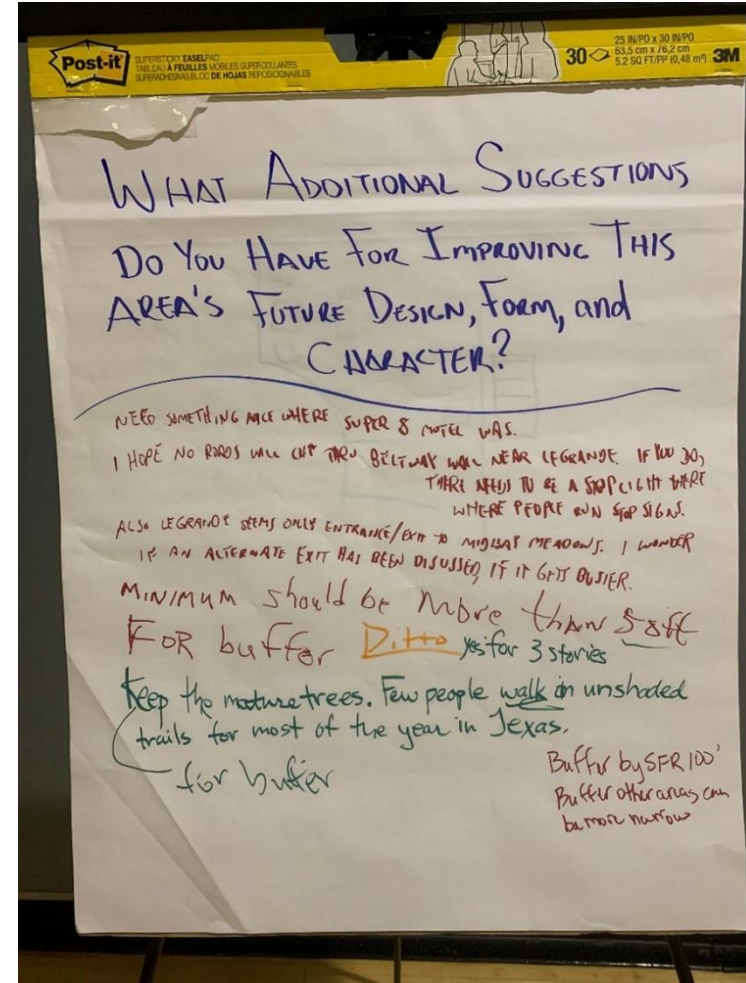 Post-it
SUPERSTICKY EASEL PAD
TABLEAU À FEUILLES MOBILES SUPERCOLLANTES
SUPERADHESIVAS BLOC DE HOJAS REPOSICIONABLES
30
25 IN/PO x 30 IN/PO
63,5 cm x 76,2 cm
5.2 SQ FT/PI² (0,48 m²)
3M
WHAT ADDITIONAL SUGGESTIONS
DO YOU HAVE FOR IMPROVING THIS
AREA'S FUTURE DESIGN, FORM, and
CHARACTER?
NEED SOMETHING NICE WHERE SUPER 8 MOTEL WAS.
I HOPE NO ROADS WILL CUT THRU BELTWAY WALL NEAR LEGRANDE. IF YOU DO,
THERE NEEDS TO BE A STOPLIGHT THERE
WHERE PEOPLE RUN STOP SIGNS.
ALSO LEGRANDE SEEMS ONLY ENTRANCE/EXIT TO MIDWAY MEADOWS. I WONDER
IF AN ALTERNATE EXIT HAS BEEN DISCUSSED, IF IT GETS BUSIER.
MINIMUM should be More than 50ft
FOR buffer Ditto yes for 3 stories
Keep the mature trees. Few people walk on unshaded
trails for most of the year in Texas.
for buffer
Buffer by SFR 100'
Buffer other areas can
be more narrow